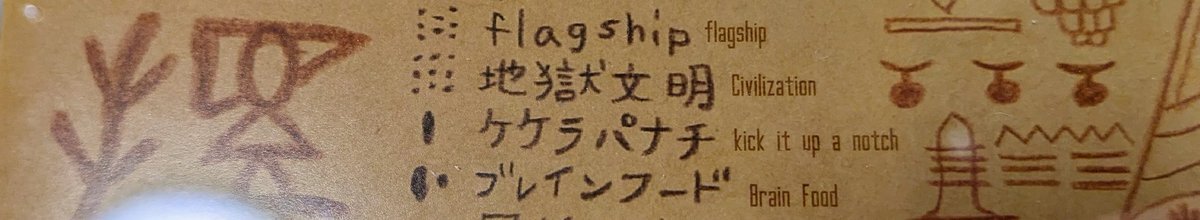 flagship flagship
地獄文明 Civilization
ケケラパナチ kick it up a notch
ブレインフード Brain Food